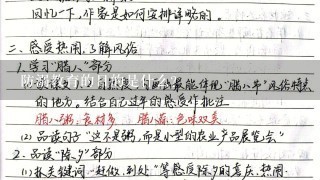 回忆一下,作家是如何安排详略的。
二、感受热闹,了解风俗
1. 学习“腊八”部分
最能体现“腊八节”风俗特点
的地方。结合自己过年的感受作批注
腊八粥:食材多 腊八蒜:色味双美
陈涉教育的目的是什么?
(2) 品读句子“这不是粥,而是小型的农业产品展览会”
2. 品读“除夕”部分
(1) 抓关键词“赶做、到处”等感受除夕的喜庆、热闹.